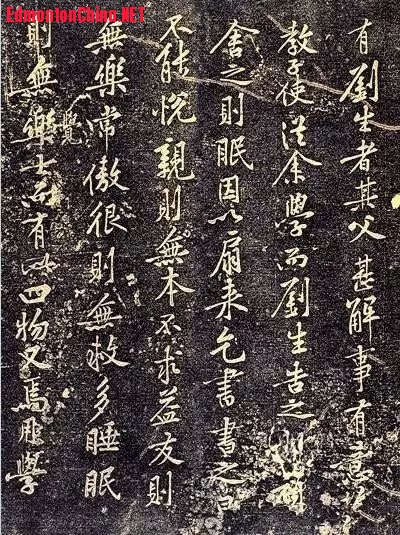 EdmontonChina.NET
有劉生者其父甚解事有意於
教子使從余學而劉生告之則
舍之則眠因以扇来乞書書之曰
不能悦親則無本不求益友則
無樂常傲很則無救多睡眠
則無樂士而有此四物又焉用學
覺